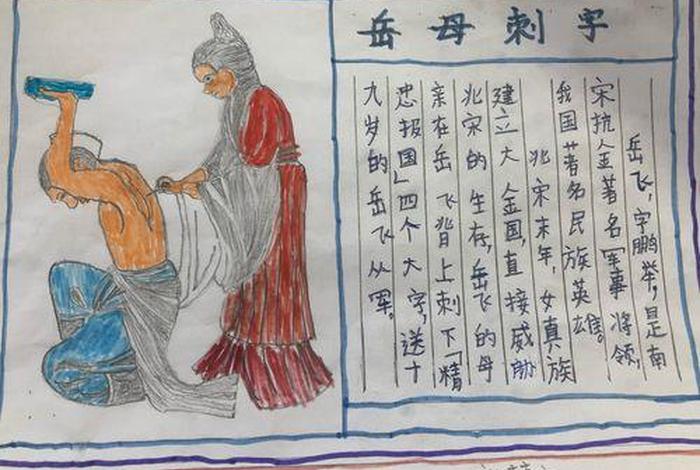 岳母刺字
岳飞，字鹏举，是南
宋抗金著名军事将领，
我国著名民族英雄。
北宋末年，女真族
建立大金国，直接威胁
北宋的生存，岳飞的母
亲在岳飞背上刺下「精
忠报国」四个大字，送十
九岁的岳飞从军。